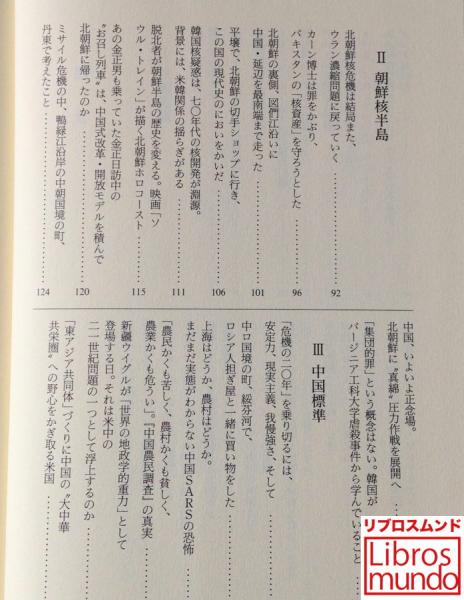 Ⅱ 朝鮮核半島
北朝鮮核危機は結局また、
ウラン濃縮問題に戻っていく……………92
カーン博士は罪をかぶり、
パキスタンの「核資産」を守ろうとした……………96
北朝鮮の裏側、図們江沿いに
中国・延辺を最南端まで走った……………101
平壌で、北朝鮮の切手ショップに行き、
この国の現代史のにおいをかいだ……………106
韓国核疑惑は、七〇年代の核開発が淵源。
背景には、米韓関係の揺らぎがある……………111
脱北者が朝鮮半島の歴史を変える。映画「ソ
ウル・トレイン」が描く北朝鮮ホロコースト……………115
あの金正男も乗っていた金正日訪中の
〝お召し列車〟は、中国式改革・開放モデルを積んで
北朝鮮に帰ったのか……………120
ミサイル危機の中、鴨緑江沿岸の中朝国境の町、
丹東で考えたこと……………124
中国、いよいよ正念場。
北朝鮮に〝真綿〟圧力作戦を展開へ……………
「集団的罪」という概念はない。韓国が
バージニア工科大学虐殺事件から学んでいること……………
Ⅲ 中国標準
「危機の二〇年」を乗り切るには、
安定力、現実主義、我慢強さ、そして……………
中ロ国境の町、綏芬河で、
ロシア人担ぎ屋と一緒に買い物をした……………
上海はどうか、農村はどうか。
まだまだ実態がわからない中国SARSの恐怖
「農民かくも苦しく、農村かくも貧しく、
農業かくも危うい」。『中国農民調査』の真実
新疆ウイグルが「世界の地政学的重力」として
登場する日。それは米中の
二一世紀問題の一つとして浮上するのか……………
「東アジア共同体」づくりに中国の〝大中華
共栄圏〟への野心をかぎ取る米国……………
リブロスムンド
Libros
mundo